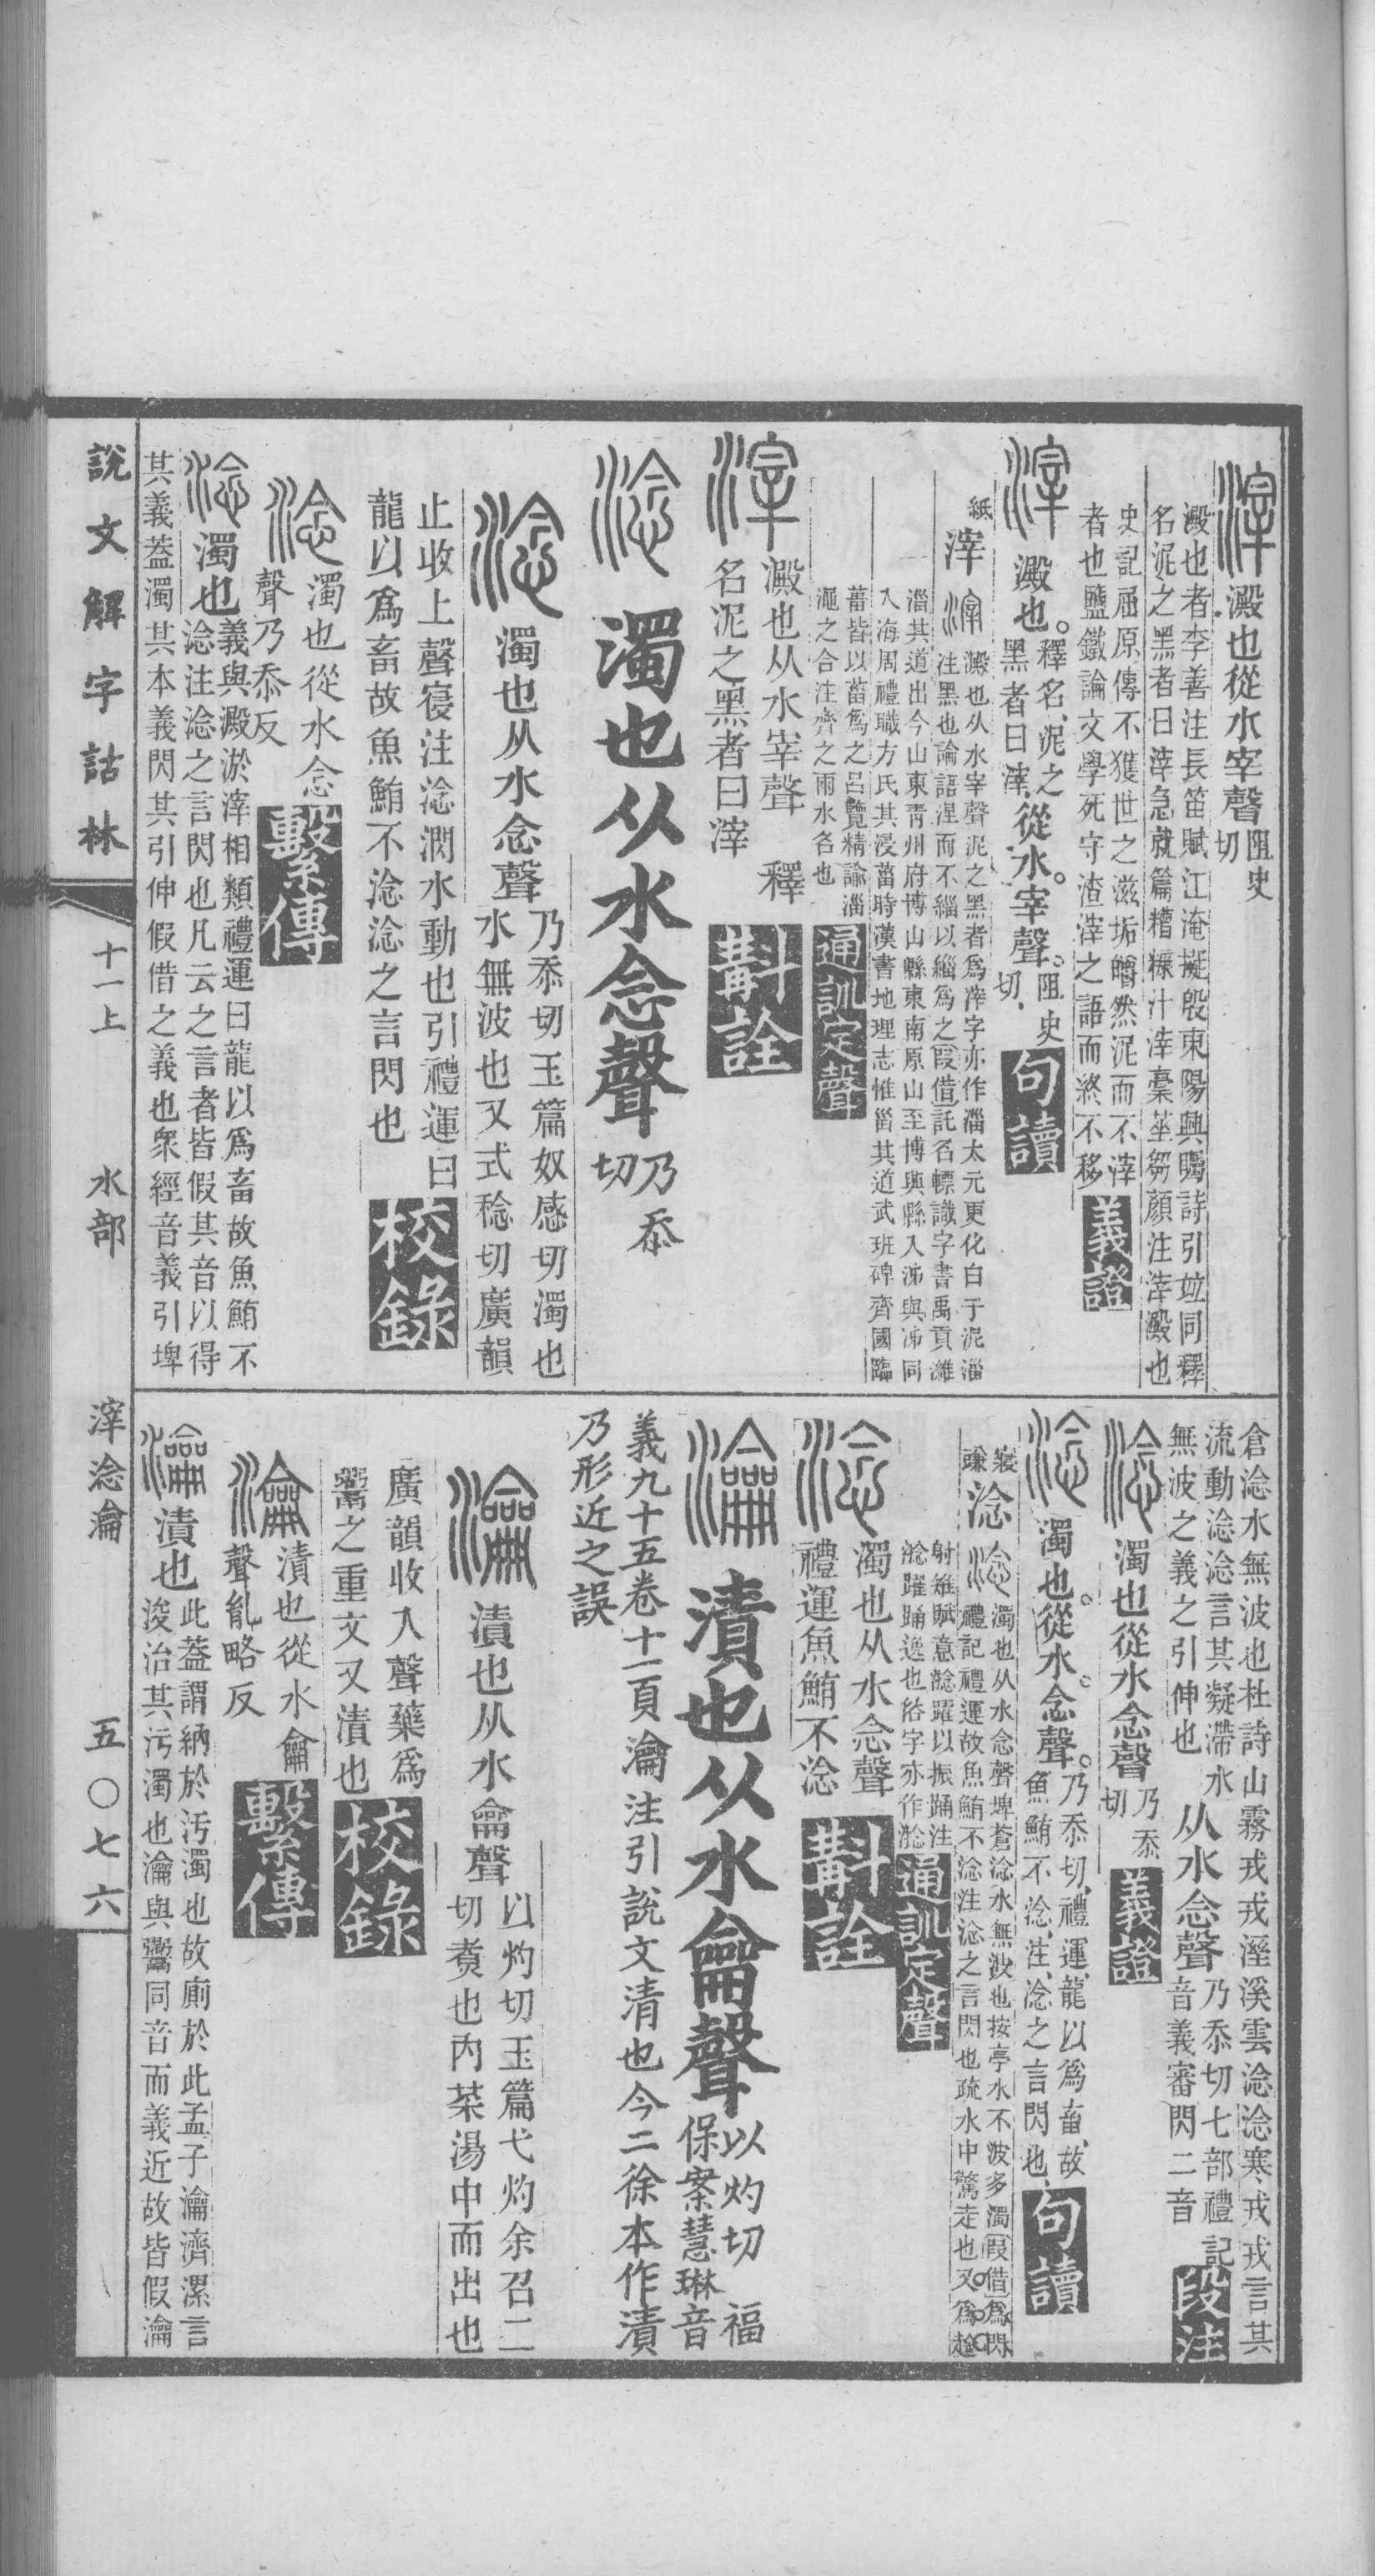 滓澱也從水宰聲阻史切
澱也者李善注長笛賦江淹擬殷東陽興矚詩引竝同釋
名泥之黑者曰滓急就篇糟糠汁滓稾莝芻顔注滓澱也
史記屈原傳不獲世之滋垢皭然泥而不滓
者也鹽鐵論文學死守渣滓之語而終不移
義證
滓澱也。釋名、泥之黑者曰滓、從水。宰聲。阻史切、
句讀
紙
滓
滓澱也从水宰聲泥之黑者爲滓字亦作淄太元更化白于泥淄
注黑也論語涅而不緇以緇爲之叚借託名幖識字書禹貢濰
淄其道出今山東靑州府博山縣東南原山至博興縣入泲與泲同
入海周禮職方氏其浸菑時漢書地理志惟甾其道武班碑齊國臨
菑皆以菑爲之呂覽精諭淄
澠之合注齊之兩水名也
通訓定聲
滓澱也从水宰聲　釋
名泥之黑者曰滓
斠詮
淰濁也从水念聲乃忝切
淰濁也从水念聲乃忝切玉篇奴感切濁也
水無波也又式稔切廣韻
止收上聲寑注淰淵水動也引禮運曰
龍以爲畜故魚鮪不淰淰之言閃也
校錄
淰濁也從水念
聲乃忝反
繫傳
淰濁也義與澱淤滓相類禮運曰龍以爲畜故魚鮪不
淰注淰之言閃也凡云之言者皆假其音以得
其義蓋濁其本義閃其引伸假借之義也衆經音義引埤
倉淰水無波也杜詩山霧戎戎溼溪雲淰淰寒、戎戎言其
流動淰淰言其凝滯水
無波之義之引伸也
从水念聲乃忝切七部禮記
音義審閃二音
段注
淰濁也從水念聲乃忝切
義證
淰濁也。從水。念聲。乃忝切、禮運、龍以爲畜、故
魚鮪不淰、注、淰之言閃也、
句讀
寢
賺
淰
淰濁也从水念聲埤蒼淰水無波也按亭水不波多濁叚借爲閃
禮記禮運故魚鮪不淰注淰之言閃也疏水中驚走也又爲趝
射雉賦意淰躍以振踊注
淰躍踊逸也俗字亦作淰
通訓定聲
淰濁也从水念聲
禮運魚鮪不淰
斠詮
瀹漬也从水龠聲以灼切　福
保案慧琳音
義九十五卷十一頁瀹注引說文清也今二徐本作漬
乃形近之誤
瀹漬也从水龠聲以灼切玉篇弋灼余召二
切煑也內菜湯中而出也
廣韻收入聲藥爲
鬻之重文又漬也
校錄
瀹漬也從水龠
聲胤略反
繫傳
瀹漬也此蓋謂納於污濁也故廁於此孟子瀹濟漯言
浚治其污濁也瀹與鬻同音而義近故皆假瀹
說文解字詁林
十一上
水部
滓淰瀹
五〇七六